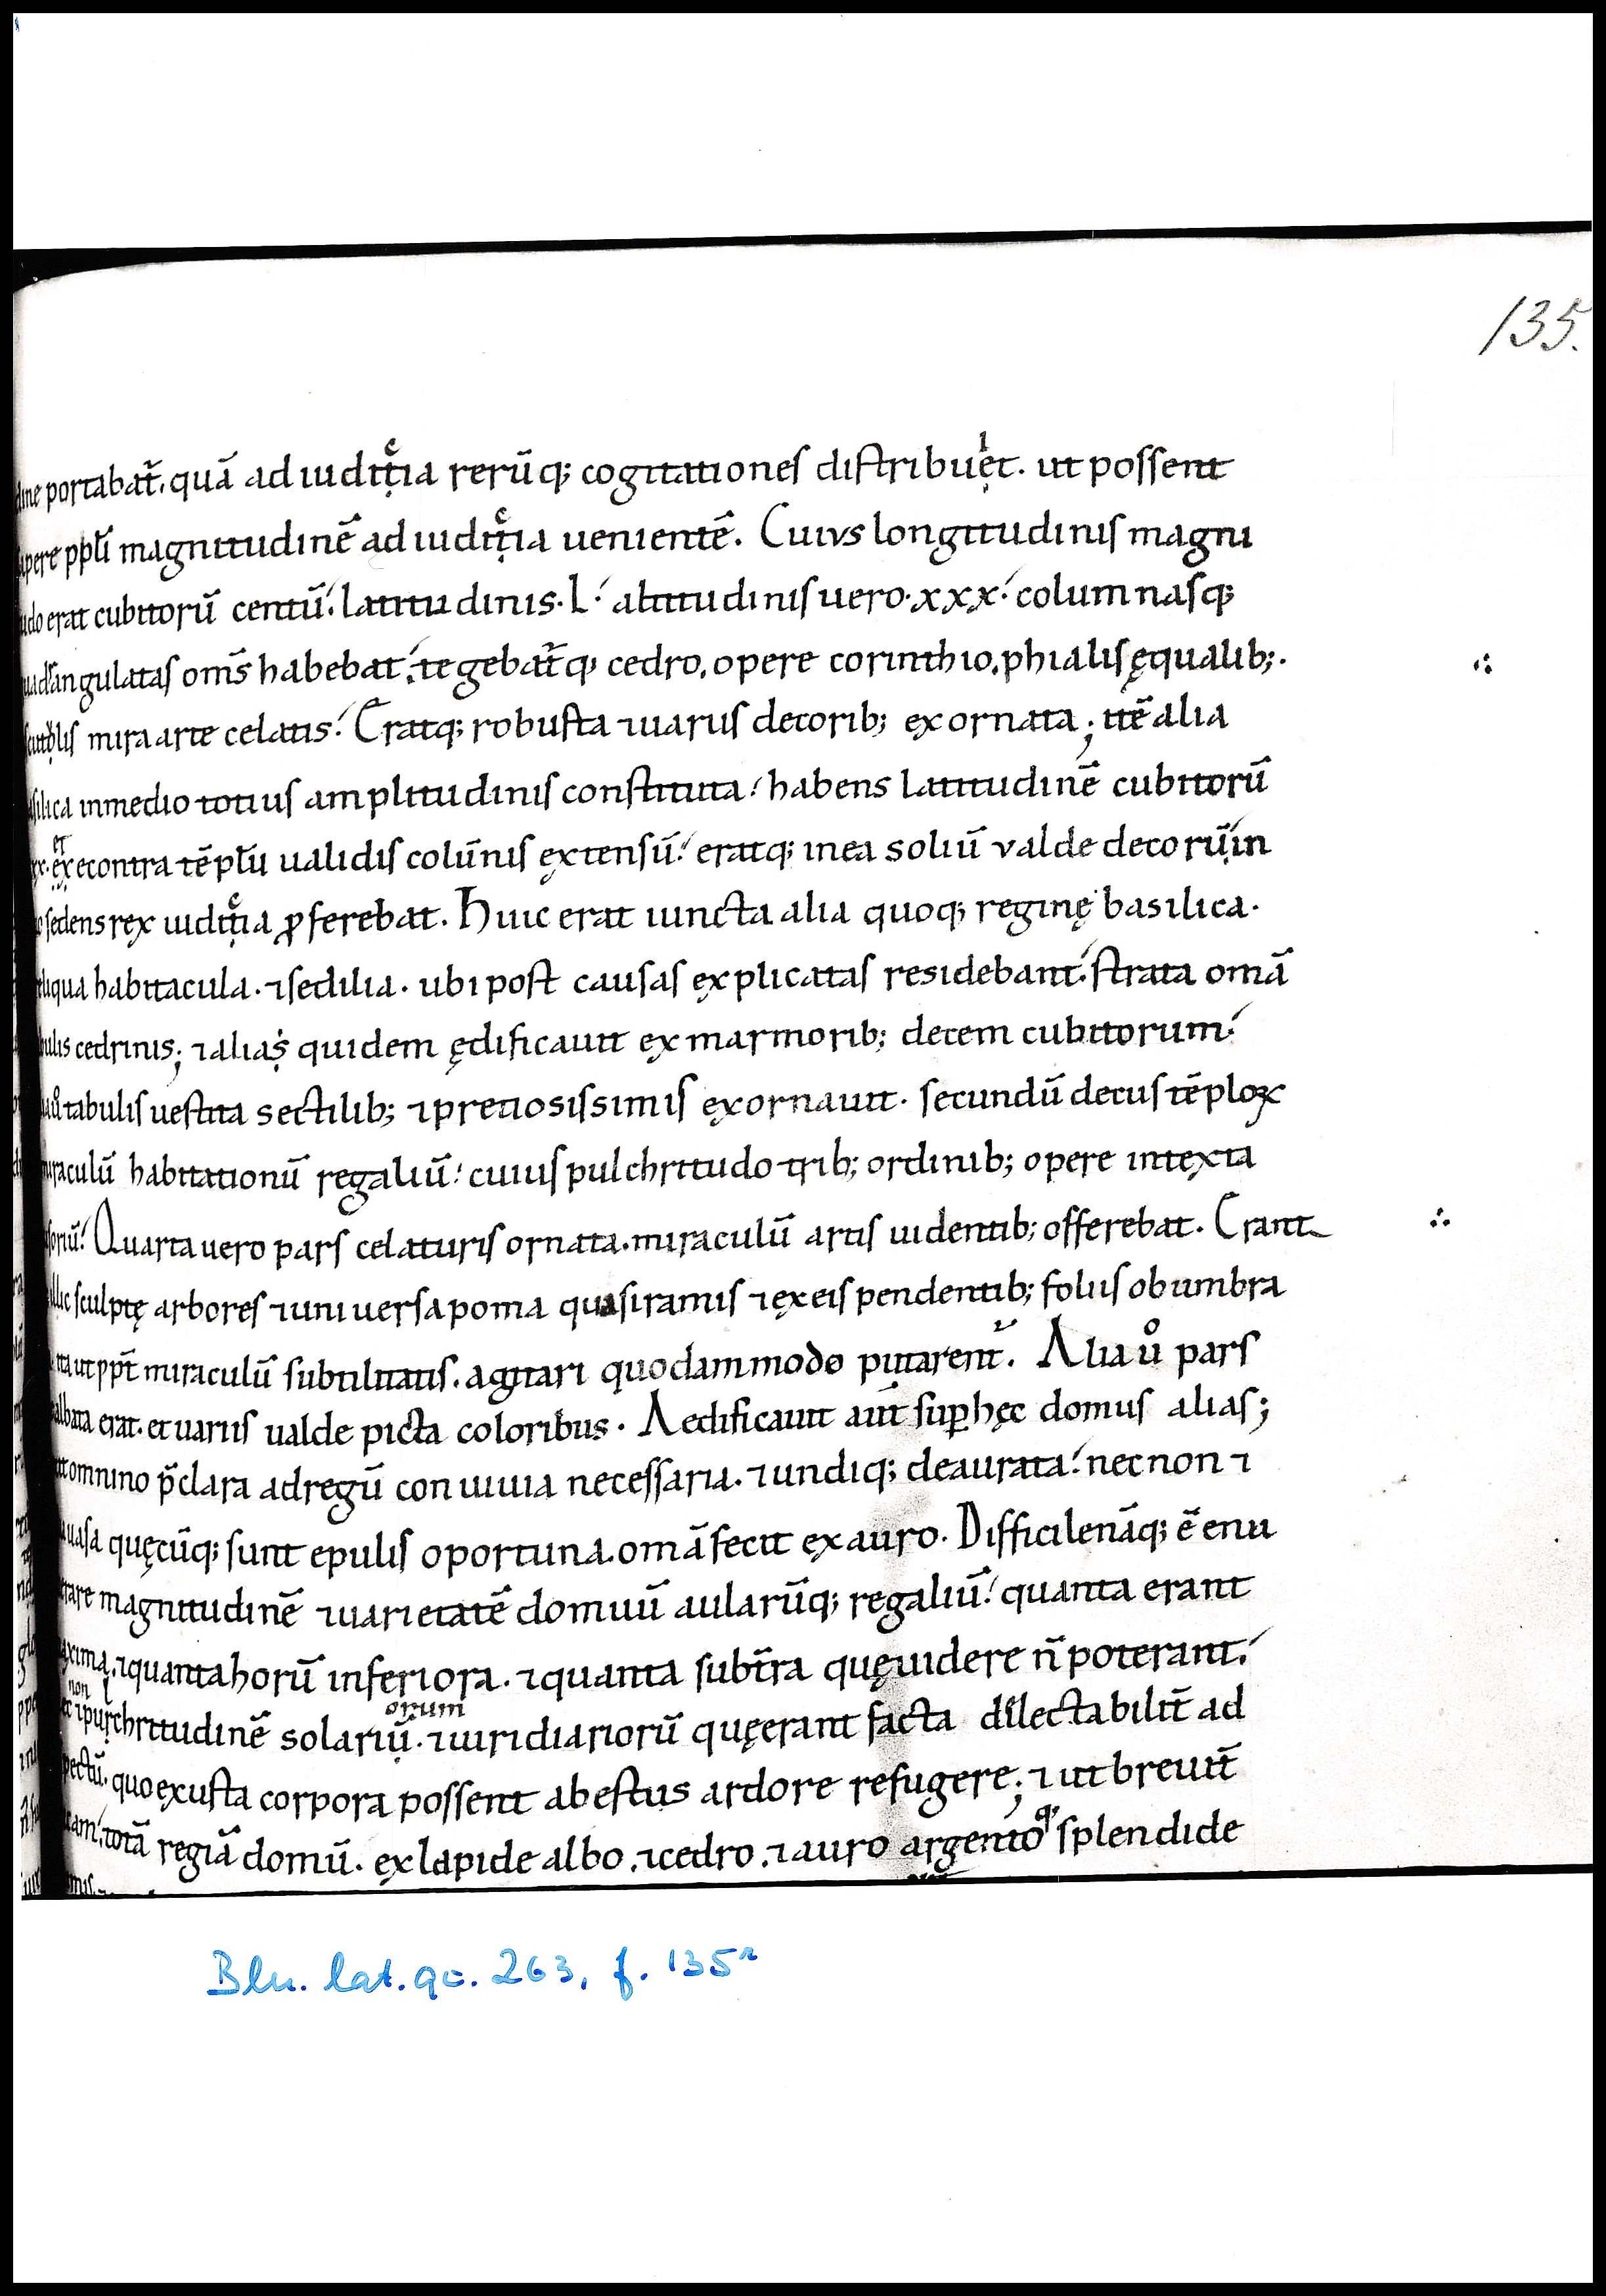 135.
portabat᷑. quā ad iuditia rerūq; cogitationes distribuet. ut possent
ppłi magnitudinē ad iuditia uenientē. Cuius longitudinis magni
erat cubitorū centū. latitudinis. L. altitudinis uero. xxx. columnasq;
angulatas oms̄ habebat. tegebat᷑q; cedro. opere corinthio. phialis ęqualib;.
mira arte celatis. Eratq; robusta ⁊ uariis decorib; exornata; itē alia
in medio totius amplitudinis constituta. habens latitudinē cubitorū
et
ex econtra tēplū ualidis colūnis extensū. eratq; in ea soliū valde decorū in
sedens rex iuditia ꝓferebat. Huic erat iuncta alia quoq; reginę basilica.
habitacula. ⁊ sedilia. ubi post causas explicatas residebant. strata omā
cedrinis; ⁊ alias quidem ędificauit ex marmorib; decem cubitorum.
tabulis uestita sectilib; ⁊ pretiosissimis exornauit. secundū decus tēploꝝ
habitationū regaliū. cuius pulchritudo trib; ordinib; opere intexta
Quarta uero pars celaturis ornata. miraculū artis uidentib; offerebat. Erant
sculptę arbores ⁊ uniuersa poma quasi ramis ⁊ ex eis pendentib; foliis obumbra
ut ppt̄ miraculū subtilitatis. agitari quodammodo putarent᷑. Alia uo pars
erat. et uariis ualde picta coloribus. Aedificauit aut̄ suꝑ hęc domus alias;
omnino p̄clara ad regū conuiuia necessaria. ⁊ undiq; deaurata. nec non ⁊
uasa quęcūq; sunt epulis oportuna. omā fecit ex auro. Difficile nāq; ē enu
magnitudinē ⁊ uarietatē domuū aularūq; regaliū. quanta erant
⁊ quanta horū inferiora. ⁊ quanta subt̄ra quę uidere n̄ poterant.
non l orum
⁊ purchritudinē solariū. ⁊ uiridiariorū quę erant facta dilectabilit̄ ad
quo exusta corpora possent ab estus ardore refugere; ⁊ ut breuit̄
totā regiā domū. ex lapide albo. ⁊ cedro. ⁊ auro argento q; splendide
Bln. lat. qu. 263, f. 135r